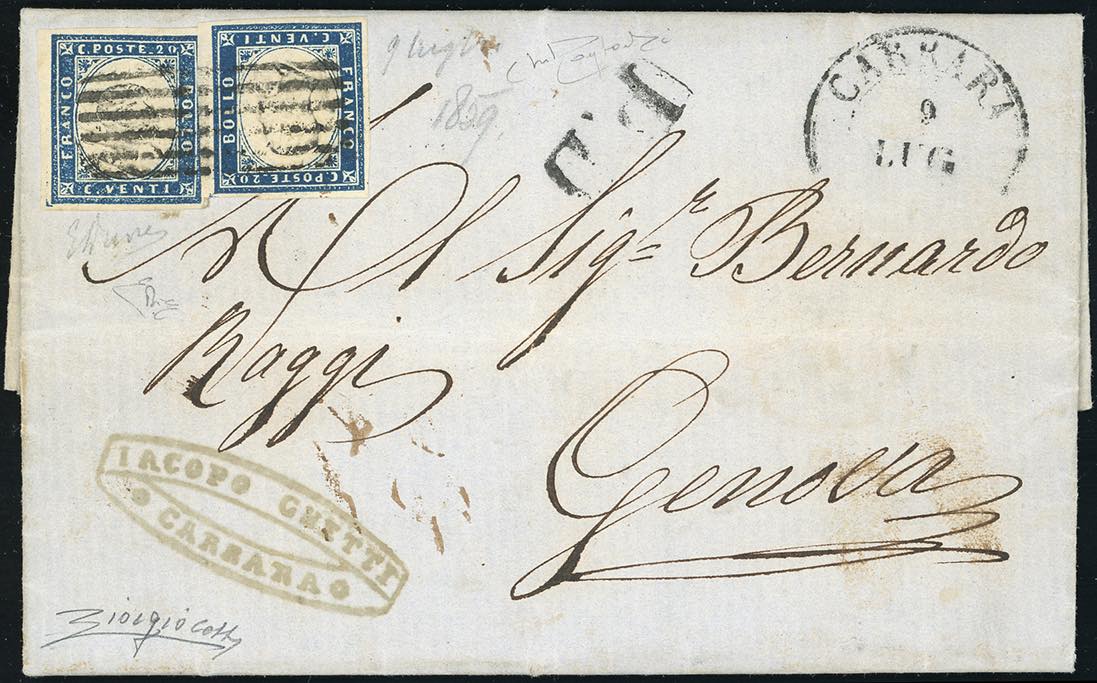 C. POSTE. 20
FRANCO
BOLLO
C. VENTI
C. VENTI
BOLLO
FRANCO
C. POSTE. 20
9 luglio
1859
P.D.
CARRARA
9
LUG
Al Sigr. Bernardo
Raggi
Genova
IACOPO GHETTI
CARRARA
Giorgio Colla